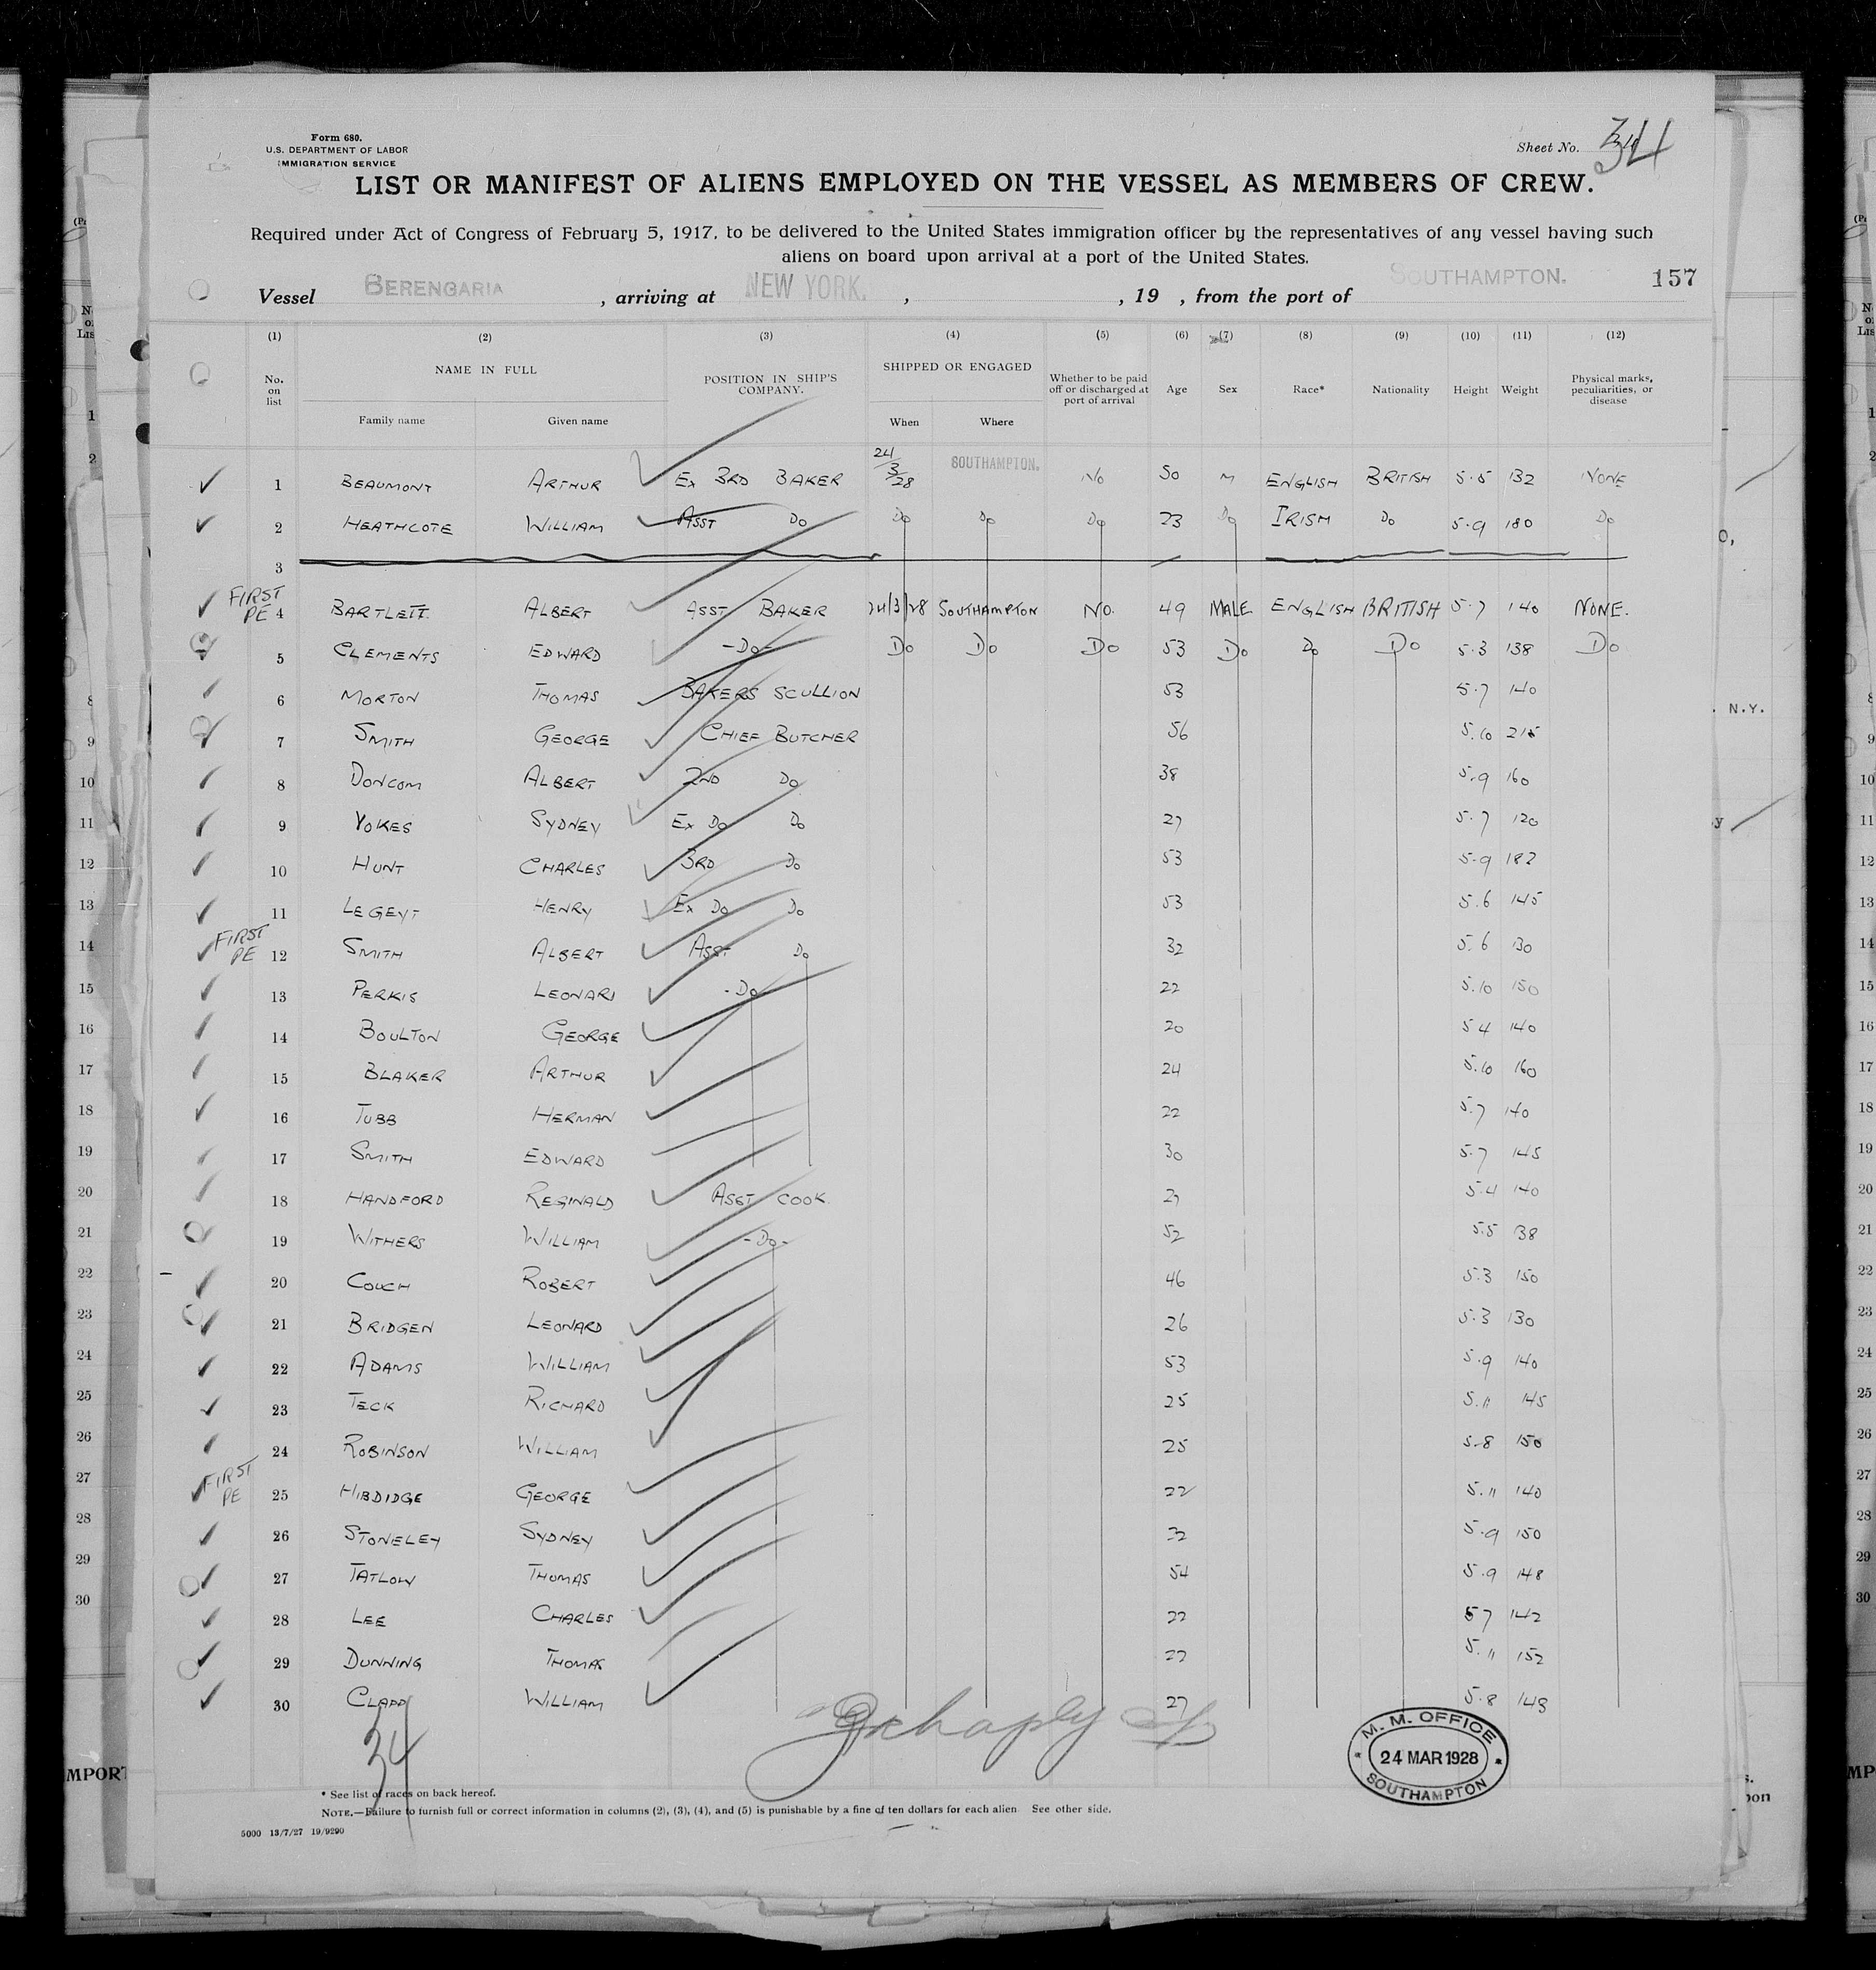 Form 680.
U.S. DEPARTMENT OF LABOR
IMMIGRATION SERVICE
Sheet No. 34
LIST OR MANIFEST OF ALIENS EMPLOYED ON THE VESSEL AS MEMBERS OF CREW.
Required under Act of Congress of February 5, 1917, to be delivered to the United States immigration officer by the representatives of any vessel having such
aliens on board upon arrival at a port of the United States.
157
Vessel BERENGARIA , arriving at NEW YORK. , , 19 , from the port of SOUTHAMPTON.
(1) (2) (3) (4) (5) (6) (7) (8) (9) (10) (11) (12)
No. on list NAME IN FULL Family name Given name POSITION IN SHIP'S COMPANY. SHIPPED OR ENGAGED When Where Whether to be paid off or discharged at port of arrival Age Sex Race* Nationality Height Weight Physical marks, peculiarities, or disease
1 BEAUMONT ARTHUR EX 3RD BAKER 24/3/28 SOUTHAMPTON. NO 50 M ENGLISH BRITISH 5.5 132 NONE
2 HEATHCOTE WILLIAM ASST DO DO DO DO 23 DO IRISH DO 5.9 180 DO
3
FIRST PE 4 BARTLETT ALBERT ASST BAKER 24/3/28 SOUTHAMPTON NO. 49 MALE ENGLISH BRITISH 5.7 140 NONE.
5 CLEMENTS EDWARD -DO- DO DO DO 53 DO DO DO 5.3 138 DO
6 MORTON THOMAS BAKERS SCULLION 53 5.7 140
7 SMITH GEORGE CHIEF BUTCHER 56 5.10 215
8 DONCOM ALBERT 2ND DO 38 5.9 160
9 VOKES SYDNEY EX DO DO 27 5.7 120
10 HUNT CHARLES 3RD DO 53 5.9 182
11 LEGEYT HENRY EX DO DO 53 5.6 145
FIRST PE 12 SMITH ALBERT ASST DO 32 5.6 130
13 PERKIS LEONARD -DO- 22 5.10 150
14 BOULTON GEORGE 20 5 4 140
15 BLAKER ARTHUR 24 5.10 160
16 TUBB HERMAN 22 5.7 140
17 SMITH EDWARD 30 5.7 145
18 HANDFORD REGINALD ASST COOK. 27 5.4 140
19 WITHERS WILLIAM -DO- 52 5.5 138
20 COUCH ROBERT 46 5.3 150
21 BRIDGEN LEONARD 26 5.3 130
22 ADAMS WILLIAM 53 5.9 140
23 TECK RICHARD 25 5.11 145
24 ROBINSON WILLIAM 25 5.8 150
FIRST PE 25 HIBDIDGE GEORGE 22 5.11 140
26 STONELEY SYDNEY 32 5.9 150
27 TATLOW THOMAS 54 5.9 148
28 LEE CHARLES 22 5 7 142
29 DUNNING THOMAS 22 5.11 152
30 CLAPP WILLIAM 27 5.8 148
34
M. M. OFFICE
24 MAR 1928
SOUTHAMPTON
* See list of races on back hereof.
NOTE.—Failure to furnish full or correct information in columns (2), (3), (4), and (5) is punishable by a fine of ten dollars for each alien. See other side.
5000 13/7/27 19/9290